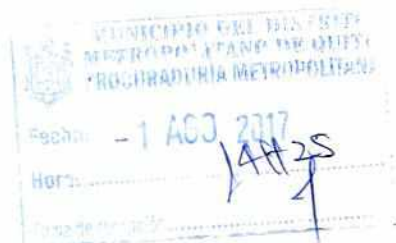 MUNICIPIO DEL DISTRITO
METROPOLITANO DE QUITO
PROCURADURÍA METROPOLITANA
Fecha: - 1 AGO 2017
Hora: 14H25